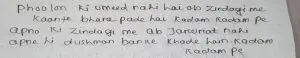 Phoolon ki umeed nahi hai ab zindagi me
Kaante bhara pade hai kadam kadam pe
apno ki zindagi me ab jarurat nahi
apne hi dushman banke khade hain kadam
kadam pe